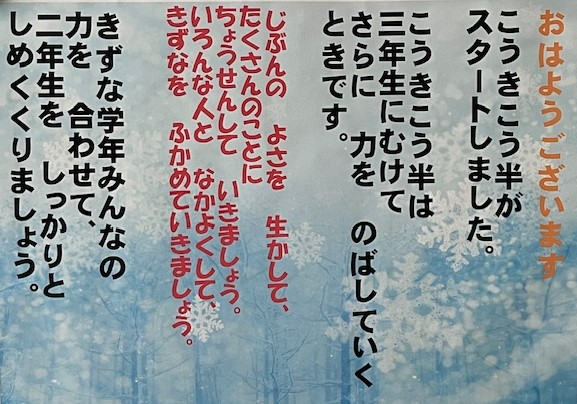 おはようございます
こうきこう半が
スタートしました。
こうきこう半は
三年生にむけて
さらに 力を のばしていく
ときです。
じぶんの よさを 生かして、
たくさんのことに
ちょうせんして いきましょう。
いろんな人と なかよくして、
きずなを ふかめていきましょう。
きずな学年みんなの
力を 合わせて、
二年生を しっかりと
しめくくりましょう。